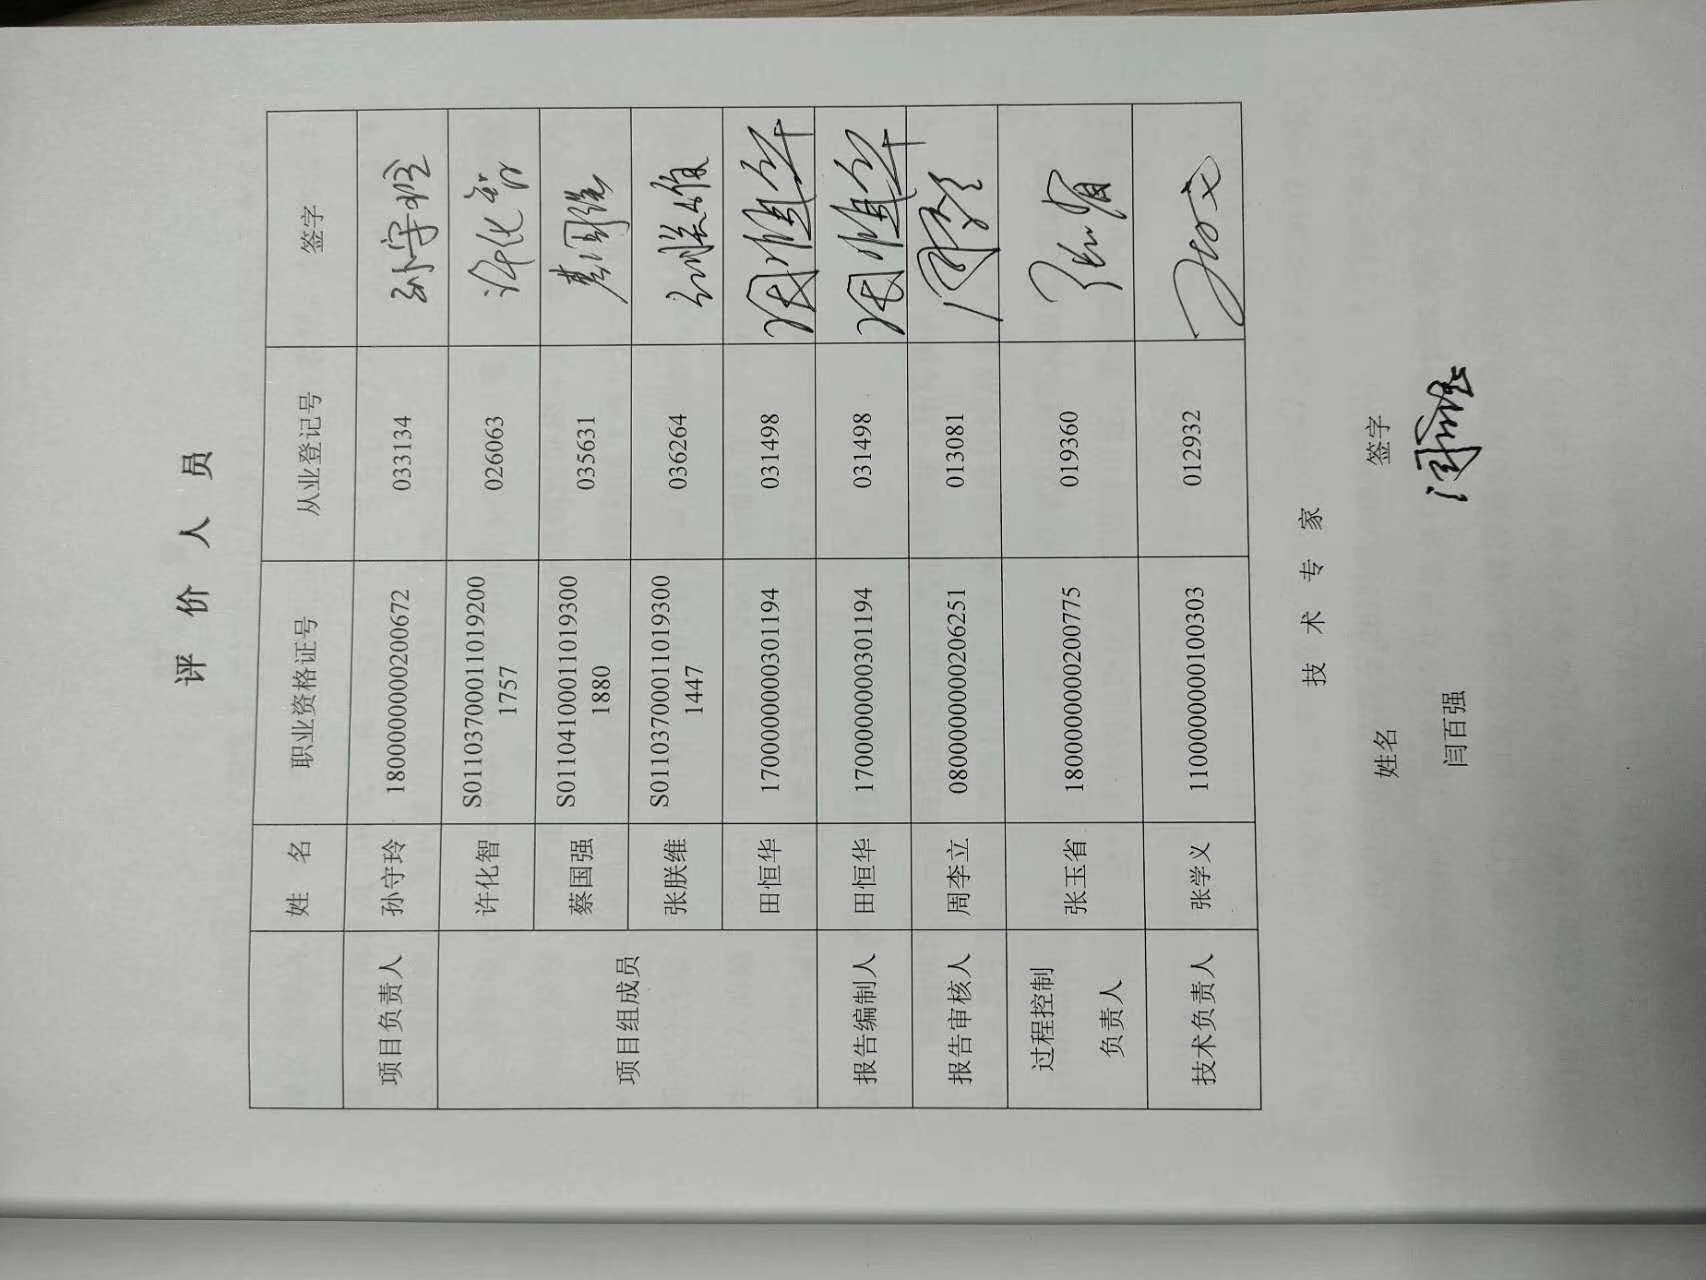 评 价 人 员
姓 名 职业资格证号 从业登记号 签字
项目负责人 孙守玲 1800000000200672 033134 孙守玲
项目组成员 许化智 S011037000110192001757 026063 许化智
蔡国强 S011041000110193001880 035631 蔡国强
张朕维 S011037000110193001447 036264 张朕维
田恒华 1700000000301194 031498 田恒华
报告编制人 田恒华 1700000000301194 031498 田恒华
报告审核人 周李立 0800000000206251 013081
过程控制
负责人 张玉省 1800000000200775 019360 张玉省
技术负责人 张学义 1100000000100303 012932
技 术 专 家
姓名 签字
闫百强